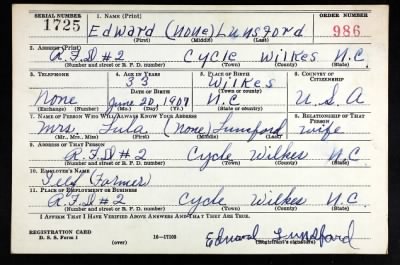 SERIAL NUMBER 1. NAME (Print) ORDER NUMBER
1725 Edward (none) Lunsford 986
(First) (Middle) (Last)
2. ADDRESS (Print)
R.F.D #2 Cycle Wilkes N.C.
(Number and street or R. F. D. number) (Town) (County) (State)
3. TELEPHONE 4. AGE IN YEARS 5. PLACE OF BIRTH 6. COUNTRY OF CITIZENSHIP
33 Wilkes
DATE OF BIRTH (Town or county)
None June 20, 1907 N.C U.S.A
(Exchange) (Number) (Mo.) (Day) (Yr.) (State or country)
7. NAME OF PERSON WHO WILL ALWAYS KNOW YOUR ADDRESS 8. RELATIONSHIP OF THAT PERSON
Mrs. Lula (None) Lunsford wife
(Mr., Mrs., Miss) (First) (Middle) (Last)
9. ADDRESS OF THAT PERSON
R.F.D #2 Cycle Wilkes N.C.
(Number and street or R. F. D. number) (Town) (County) (State)
10. EMPLOYER'S NAME
Self Farmer
11. PLACE OF EMPLOYMENT OR BUSINESS
R.F.D #2 Cycle Wilkes N.C.
(Number and street or R. F. D. number) (Town) (County) (State)
I AFFIRM THAT I HAVE VERIFIED ABOVE ANSWERS AND THAT THEY ARE TRUE.
REGISTRATION CARD
D. S. S. Form 1 (over) 16—17105 Edward Lunsford
(Registrant's signature)